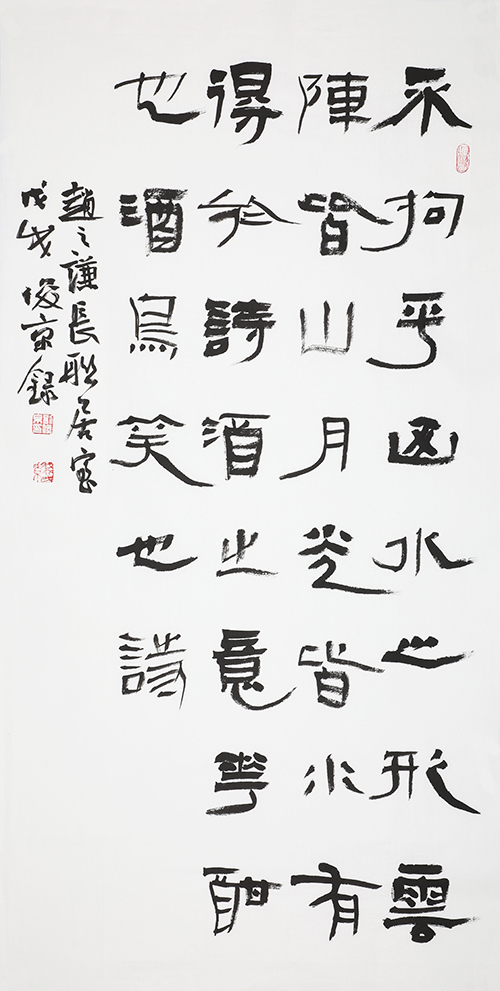 不拘乎山水之形雲
陣皆山月光皆水有
得於詩酒之意花酣
也酒鳥笑也詩
趙之謙長聯居室
戊戌俊京錄